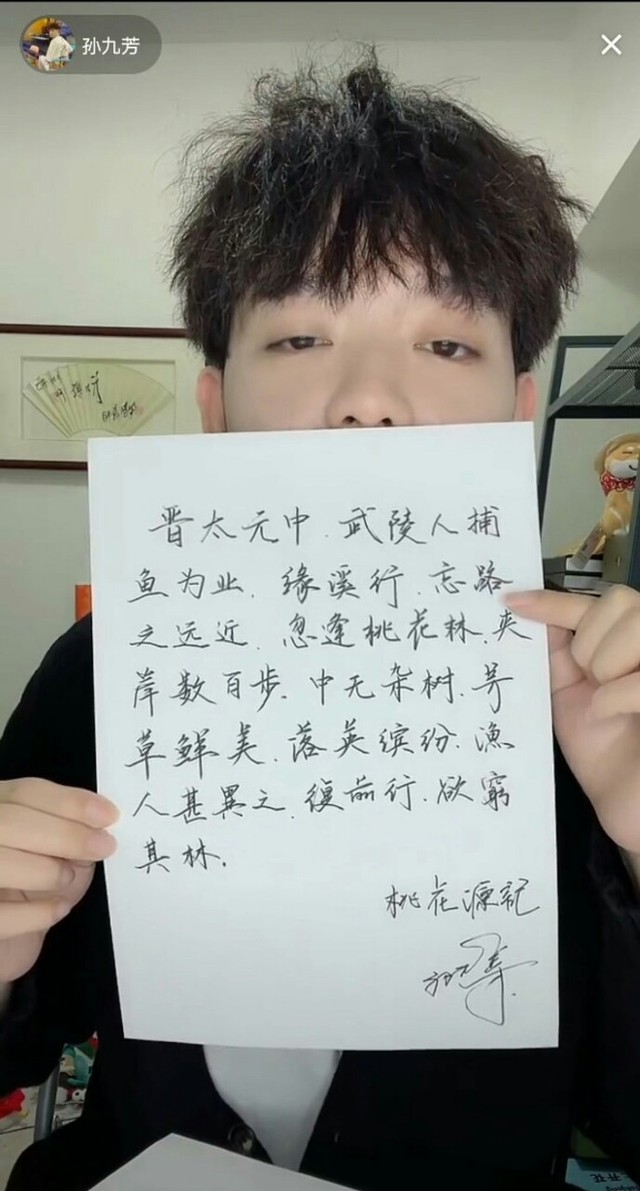 孙九芳
晋太元中.武陵人捕
鱼为业.缘溪行.忘路
之远近.忽逢桃花林.夹
岸数百步.中无杂树.芳
草鲜美.落英缤纷.漁
人甚異之.復前行.欲窮
其林.
桃花源記